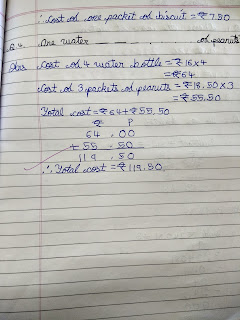 ∴ Cost of one packet of biscuit = ₹ 7.50
Q 4. One water of peanuts
Ans Cost of 4 water bottle = ₹ 16 x 4
= ₹ 64
Cost of 3 packets of peanuts = ₹ 18.50 x 3
= ₹ 55.50
Total cost = ₹ 64 + ₹ 55.50
₹ P
64 . 00
+ 55 . 50
119 . 50
∴ Total cost = ₹ 119.50.